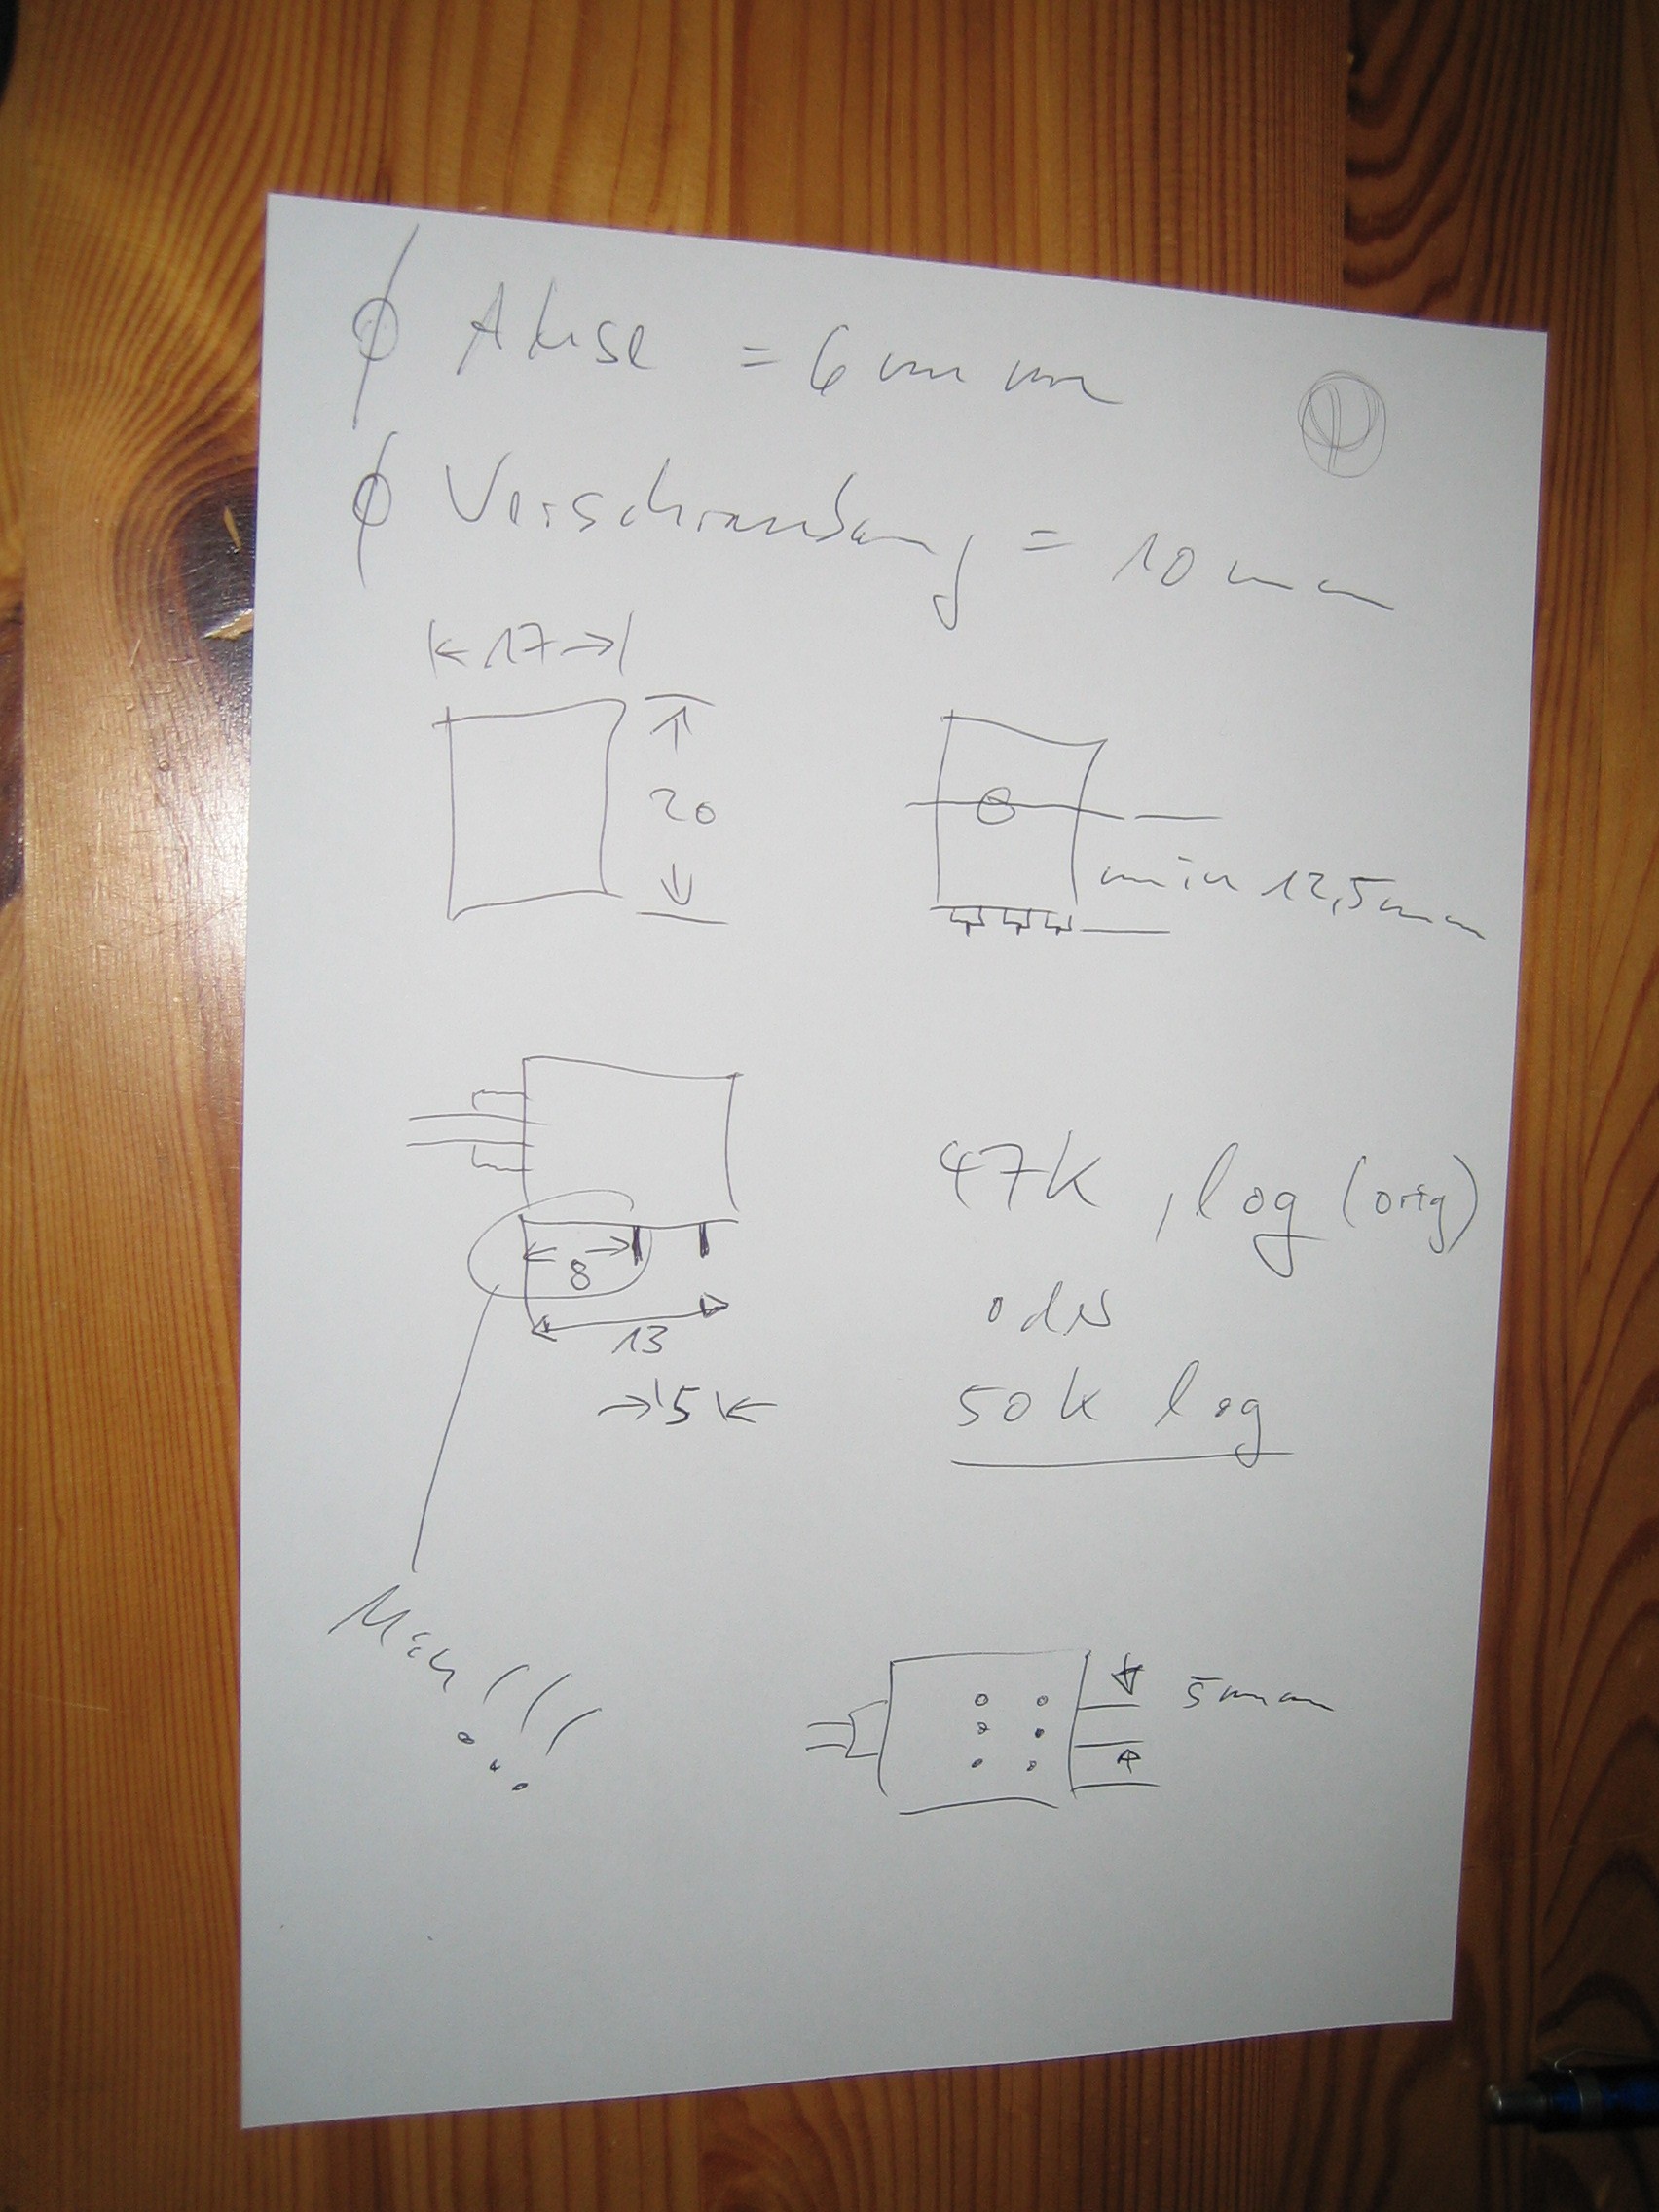 ϕ Akse = 6mm
ϕ Verschraubung = 10mm
17
20
min 12,5mm
47K, log (orig)
8
oder
13
50K log
5
Min!!!
5mm